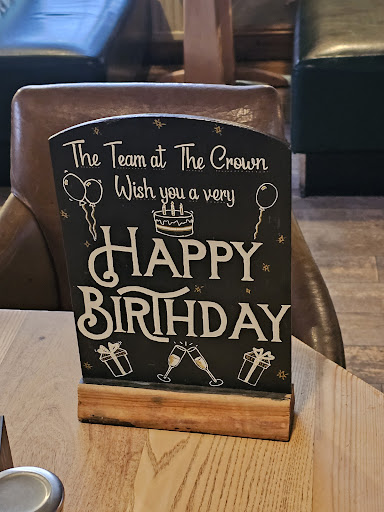 The Team at The Crown
Wish you a very
HAPPY
BIRTHDAY